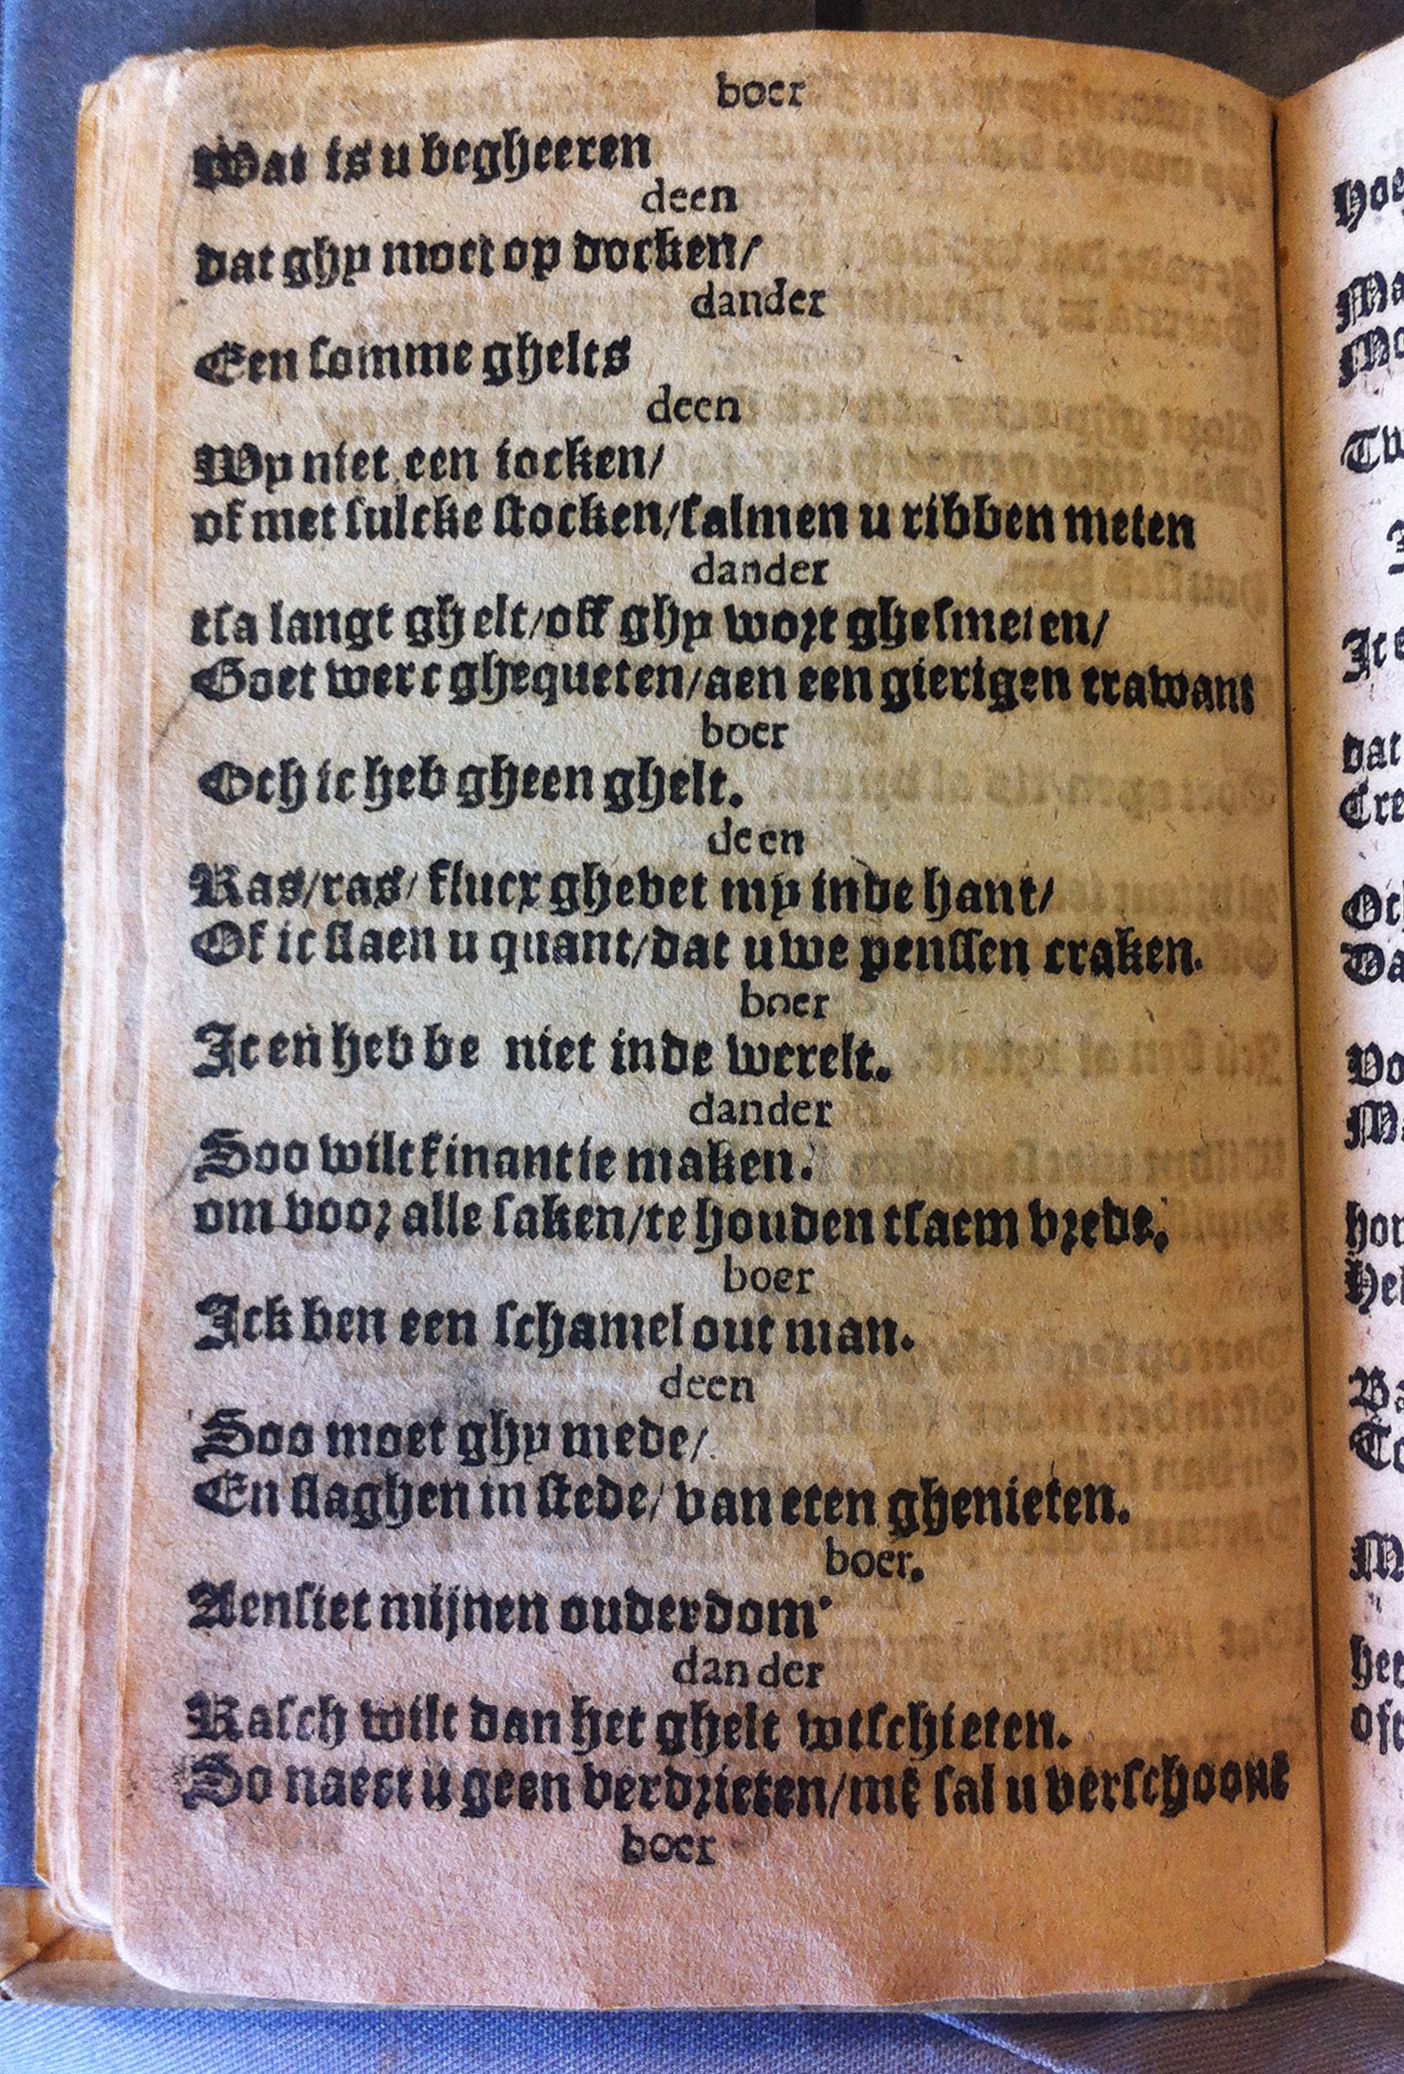 boer
Wat is u begheeren
deen
dat ghy moet op docken/
dander
Een somme ghelts
deen
Wy niet een iocken/
of met sulcke stocken/salmen u ribben meten
dander
tsa langt ghelt/off ghy wort ghesmeten/
Goet werc ghequeten/aen een gierigen trawant
boer
Och ic heb gheen ghelt.
deen
Ras/ras/ flucx ghevet my inde hant/
Of ic slaen u quant/dat uwe penssen craken.
boer
Ic en hebbe niet inde werelt.
dander
Soo wilt finantie maken.
om voor alle saken/te houden tsaem vrede.
boer
Ick ben een schamel out man.
deen
Soo moet ghy mede/
En slaghen in stede/ van eten ghenieten.
boer.
Aensiet mijnen ouderdom
dander
Rasch wilt dan het ghelt wtschieten.
So naect u geen verdrieten/mē sal u verschoonē
boer
Hoe
Ma
Mo
Tw
dat
Cre
Och
Da
Vo
hon
Hel
Ba
To
M
het